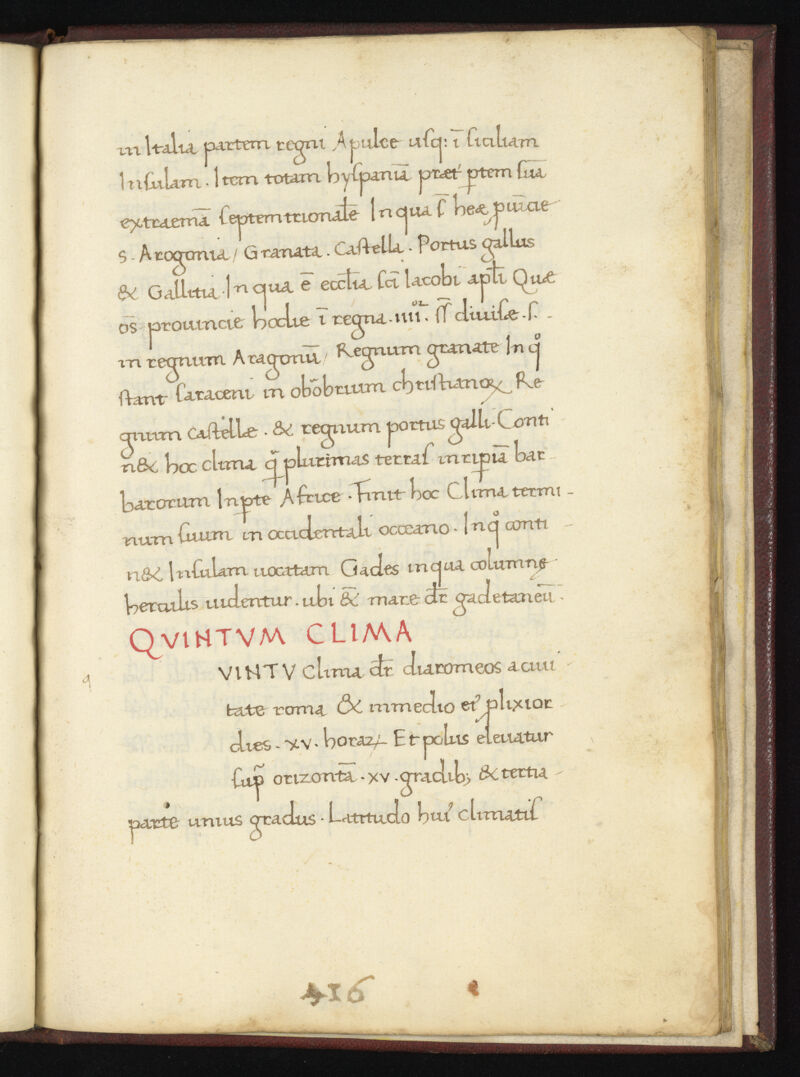 in Italia partem regni Apulee usq: ī siciliam
Insulam. Item totam hyspaniā præt' ꝑtem suā
extraemā septemtrionalē In qua s̄ heæ ꝓuīcie
s. Arogonia / Granata. Castella. Portus gallus
& Gallitia. In qua ē eccl̄ia sc̄i Iacobi apl̄i Quæ
ōs prouincie hodie ī regna .iiiiᵒʳ. s̄s̄ diuisæ. s. -
in regnum Aragonū / Regnum granate In qͦ
stant saraceni in obōbrium christianoꝝ Re
gnum Castellæ. & regnum portus galli. Conti
n& hoc clima qͣ plurimas terras in ripiā bar
barorum In ꝑte Africe. Finit hoc Clima termi -
num suum in occidentali occeano. In qͦ conti
n& Insulam uocatam Gades in qua columnę
herculis uidentur. ubi & mare dr̄ gadetaneū.
QVINTVM CLIMA
q
VINTV Clima dr̄ diaromeos a ciui
tate roma & in medio eiꝰ ꝓlixior
dies. xv. horaꝝ Et polus eleuatur
suꝑ orizontā. xv. gradibꝫ & tertia
parte unius gradus. Latitudo huiꝰ climatis
416